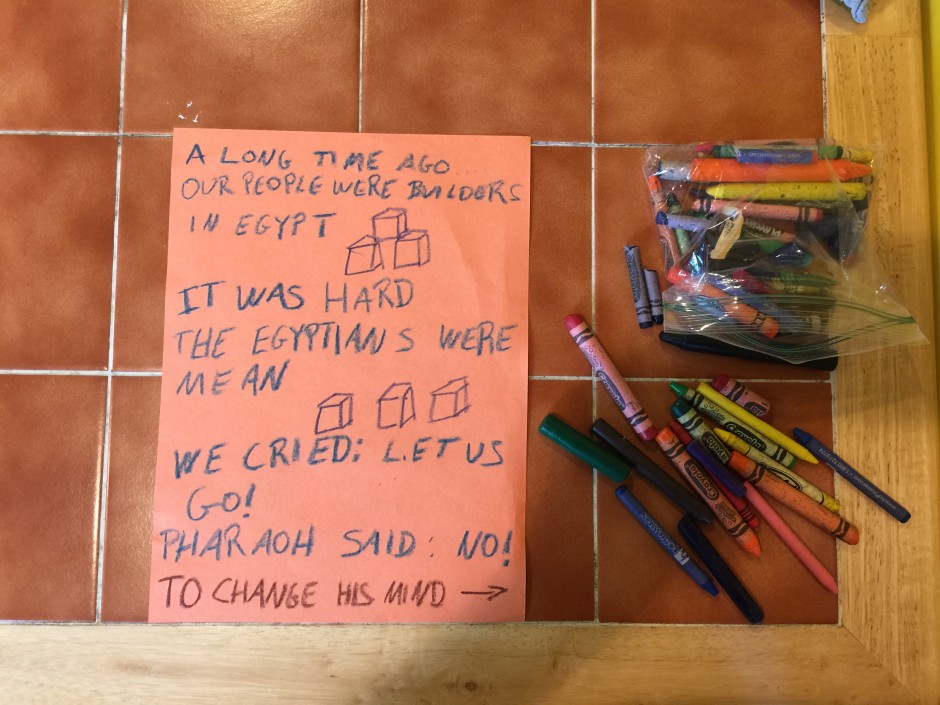 A LONG TIME AGO...
OUR PEOPLE WERE BUILDERS
IN EGYPT
IT WAS HARD
THE EGYPTIANS WERE
MEAN
WE CRIED: LET US
GO!
PHARAOH SAID: NO!
TO CHANGE HIS MIND →
Crayola
Crayola
Crayola